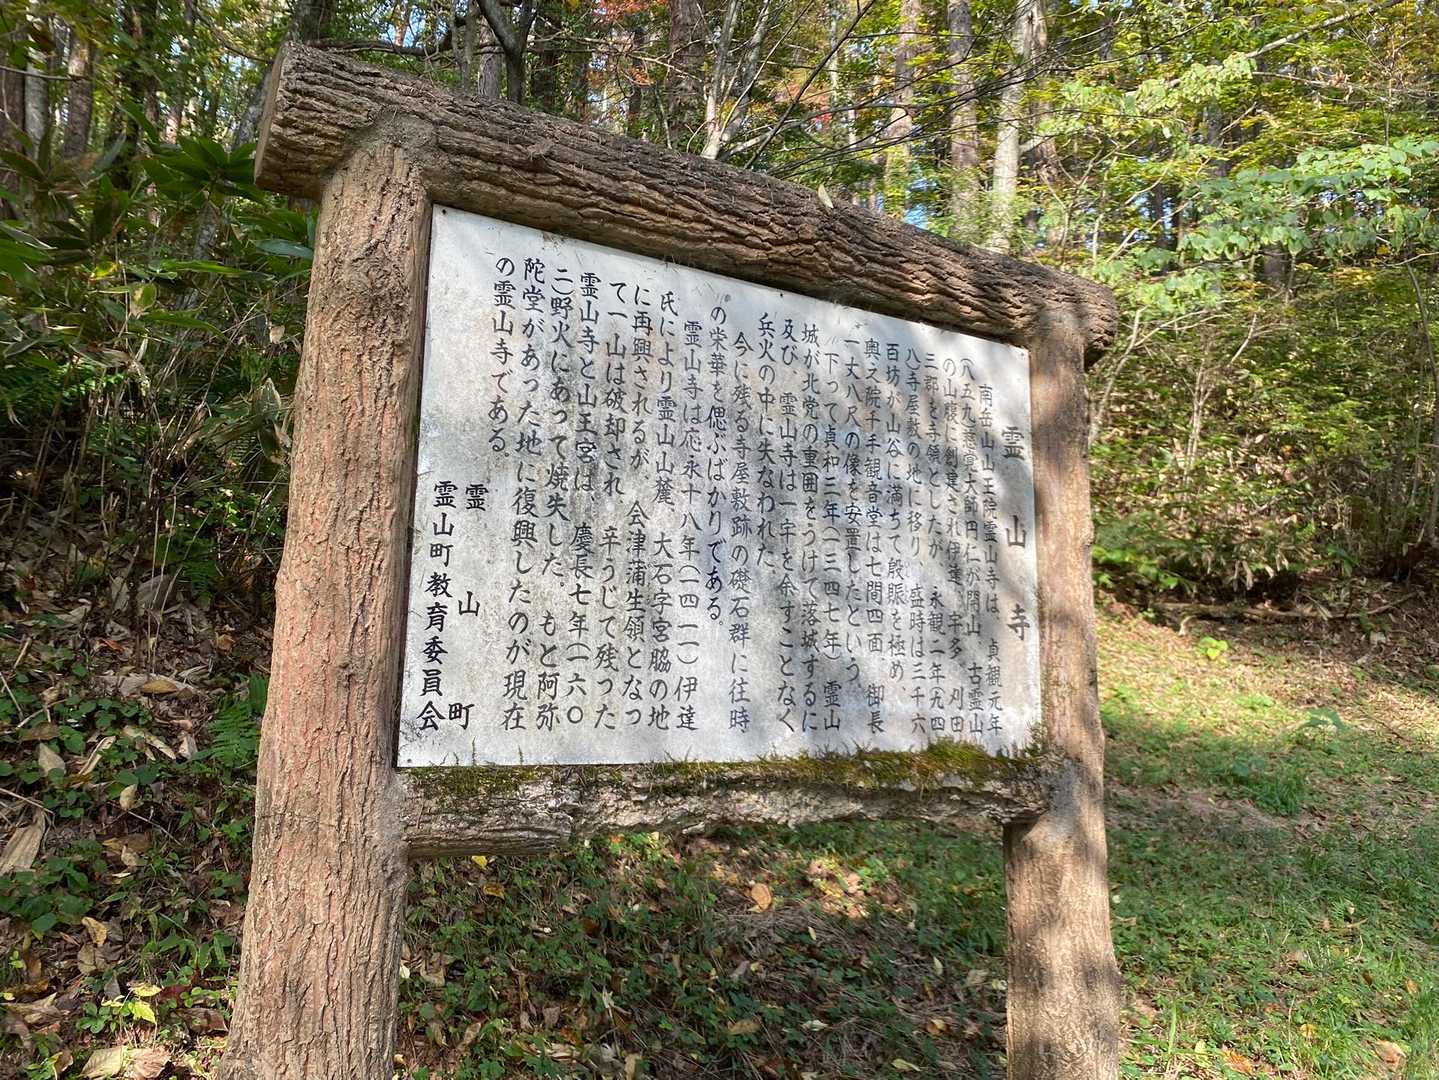 霊山寺
南岳山山王院霊山寺は、貞観元年
(八五九)慈覚大師円仁が開山、古霊山
の山腹に創建され伊達、宇多、刈田
三郡を寺領としたが、永観二年(九四
八)寺屋敷の地に移り、盛時は三千六
百坊が山谷に満ちて殷賑を極め、
奥之院千手観音堂は七間四面、御長
一丈八尺の像を安置したという。
下って貞和三年(一三四七年)霊山
城が北党の重囲をうけて落城するに
及び、霊山寺は一宇を余すことなく
兵火の中に失なわれた。
今に残る寺屋敷跡の礎石群に往時
の栄華を偲ぶばかりである。
霊山寺は応永十八年(一四一一)伊達
氏により霊山山麓、大石字宮脇の地
に再興されるが、会津蒲生領となっ
て一山は破却され、辛うじて残った
霊山寺と山王宮は、慶長七年(一六〇
二)野火にあって焼失した。もと阿弥
陀堂があった地に復興したのが現在
の霊山寺である。
霊山町
霊山町教育委員会